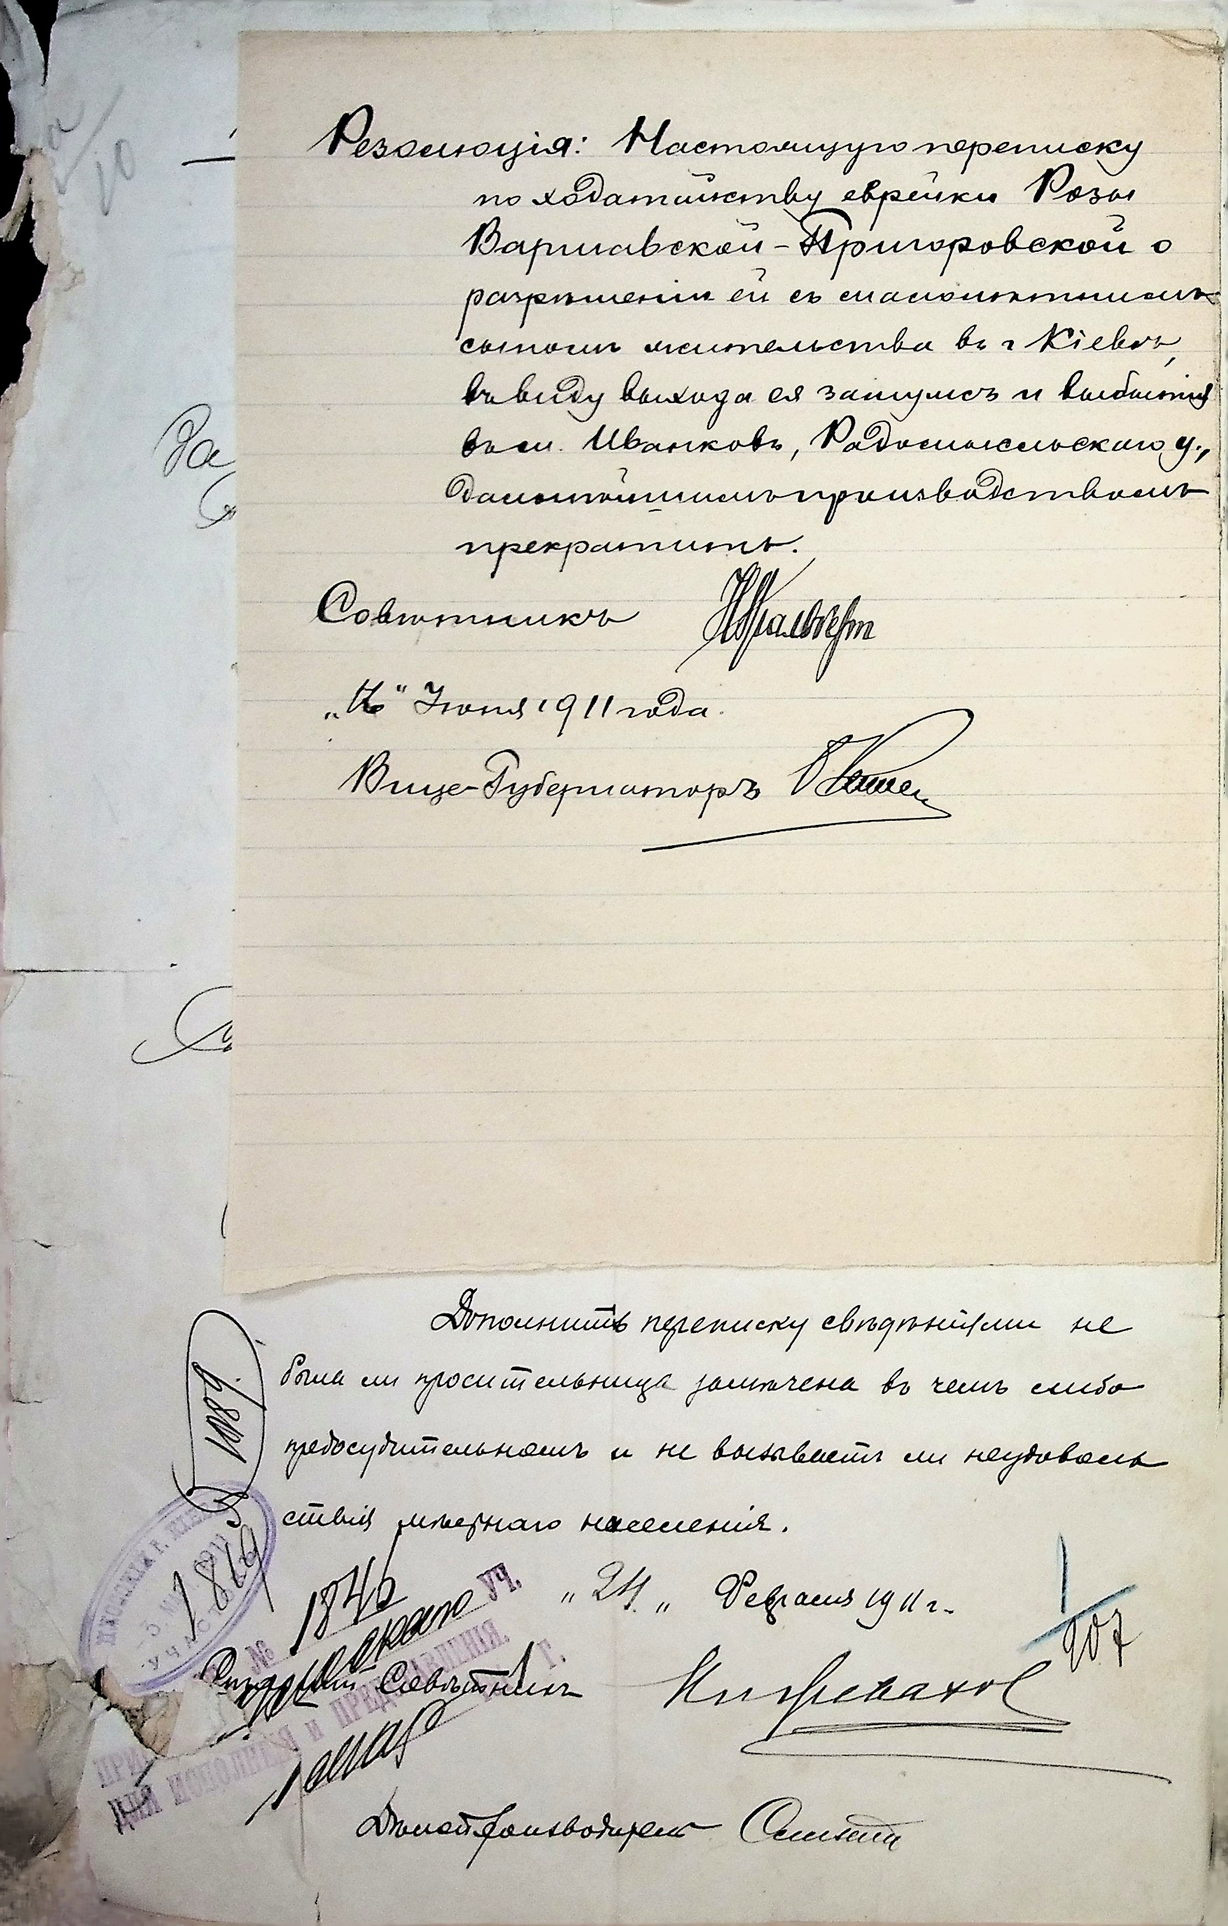 Резолюція: Настоящую переписку
по ходатайству еврейки Розы
Варшавской-Пригоровской о
разрѣшеніи ей съ малолѣтнимъ
сыномъ жительства въ г. Кіевѣ,
въ виду выхода ея замужъ и выбытія
въ м. Иванковъ, Радомысльскаго у.,
дальнѣйшимъ производствомъ
прекратить.
Совѣтникъ
Іюня 1911 года.
Вице-Губернаторъ
Дополнить переписку свѣдѣніями не
была ли просительница замѣчена въ чемъ либо
предосудительномъ и не вызываетъ ли неудоволь
ствія мѣстнаго населенія.
1089
1819
№ 1846
УЧ.
„24„ Февраля 1911 г.
1/207
Совѣтникъ
ДЛЯ ПОПОЛНЕНІЯ И ПРЕДСТАВЛЕНІЯ.
Г.
Дѣлопроизводитель